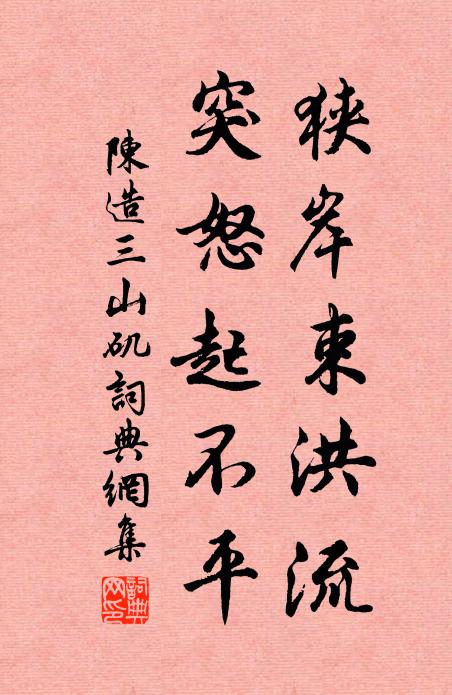 狭岸束洪流
突怒起不平
陳造三山矶詞典網集
詞典網印